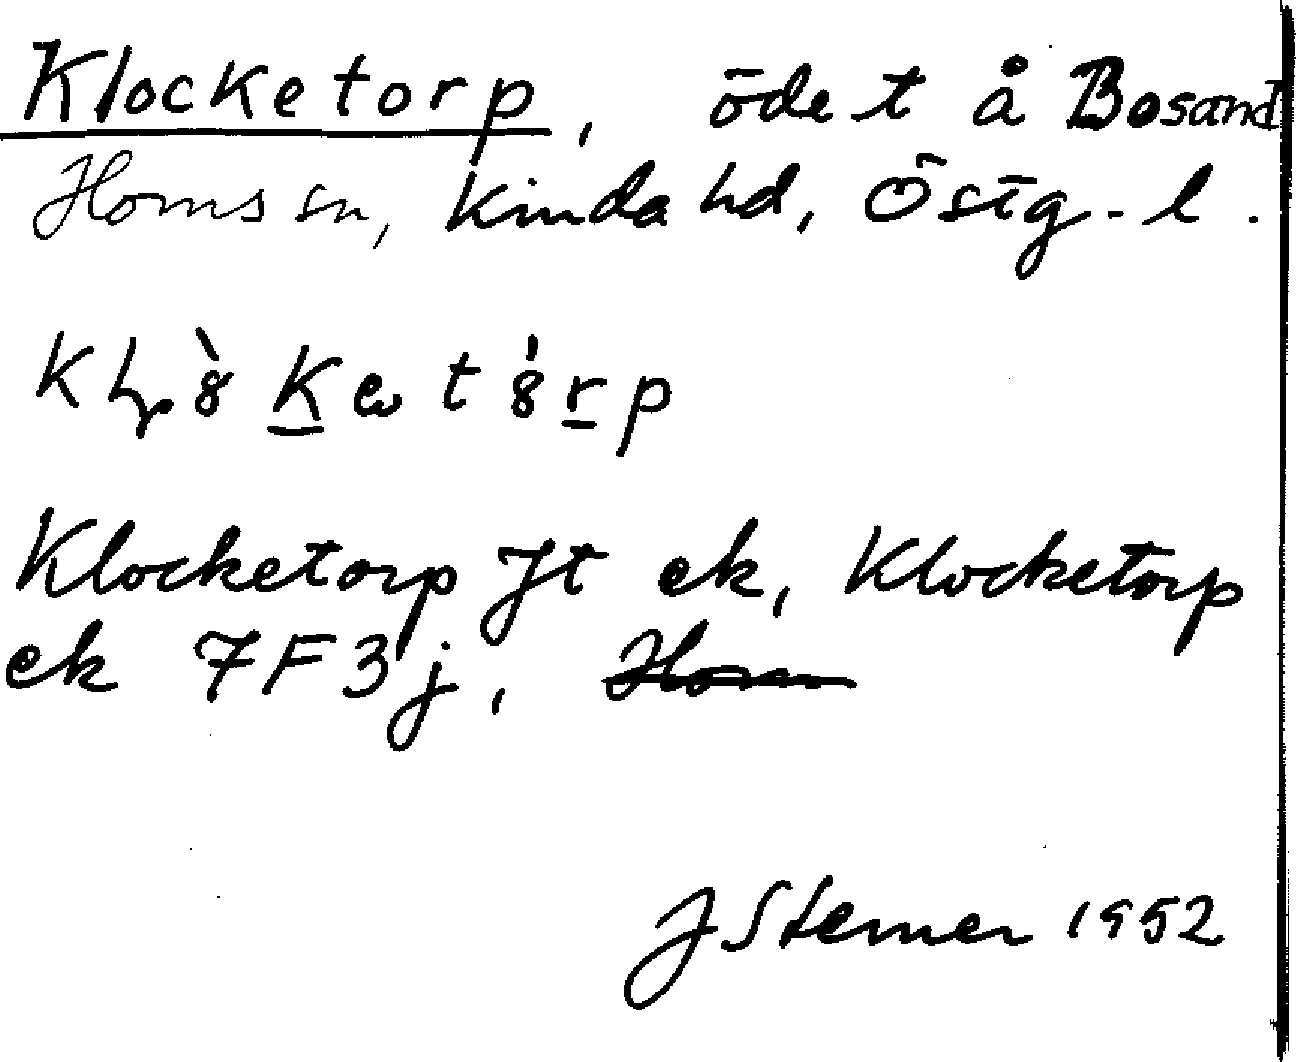 Klocketorp, öde t å Bosand
Horns sn, Kinda hd, Östg.l.
Klocketorp Jt ek, Klocketorp
ek 7F3j,
J Sterner 1952